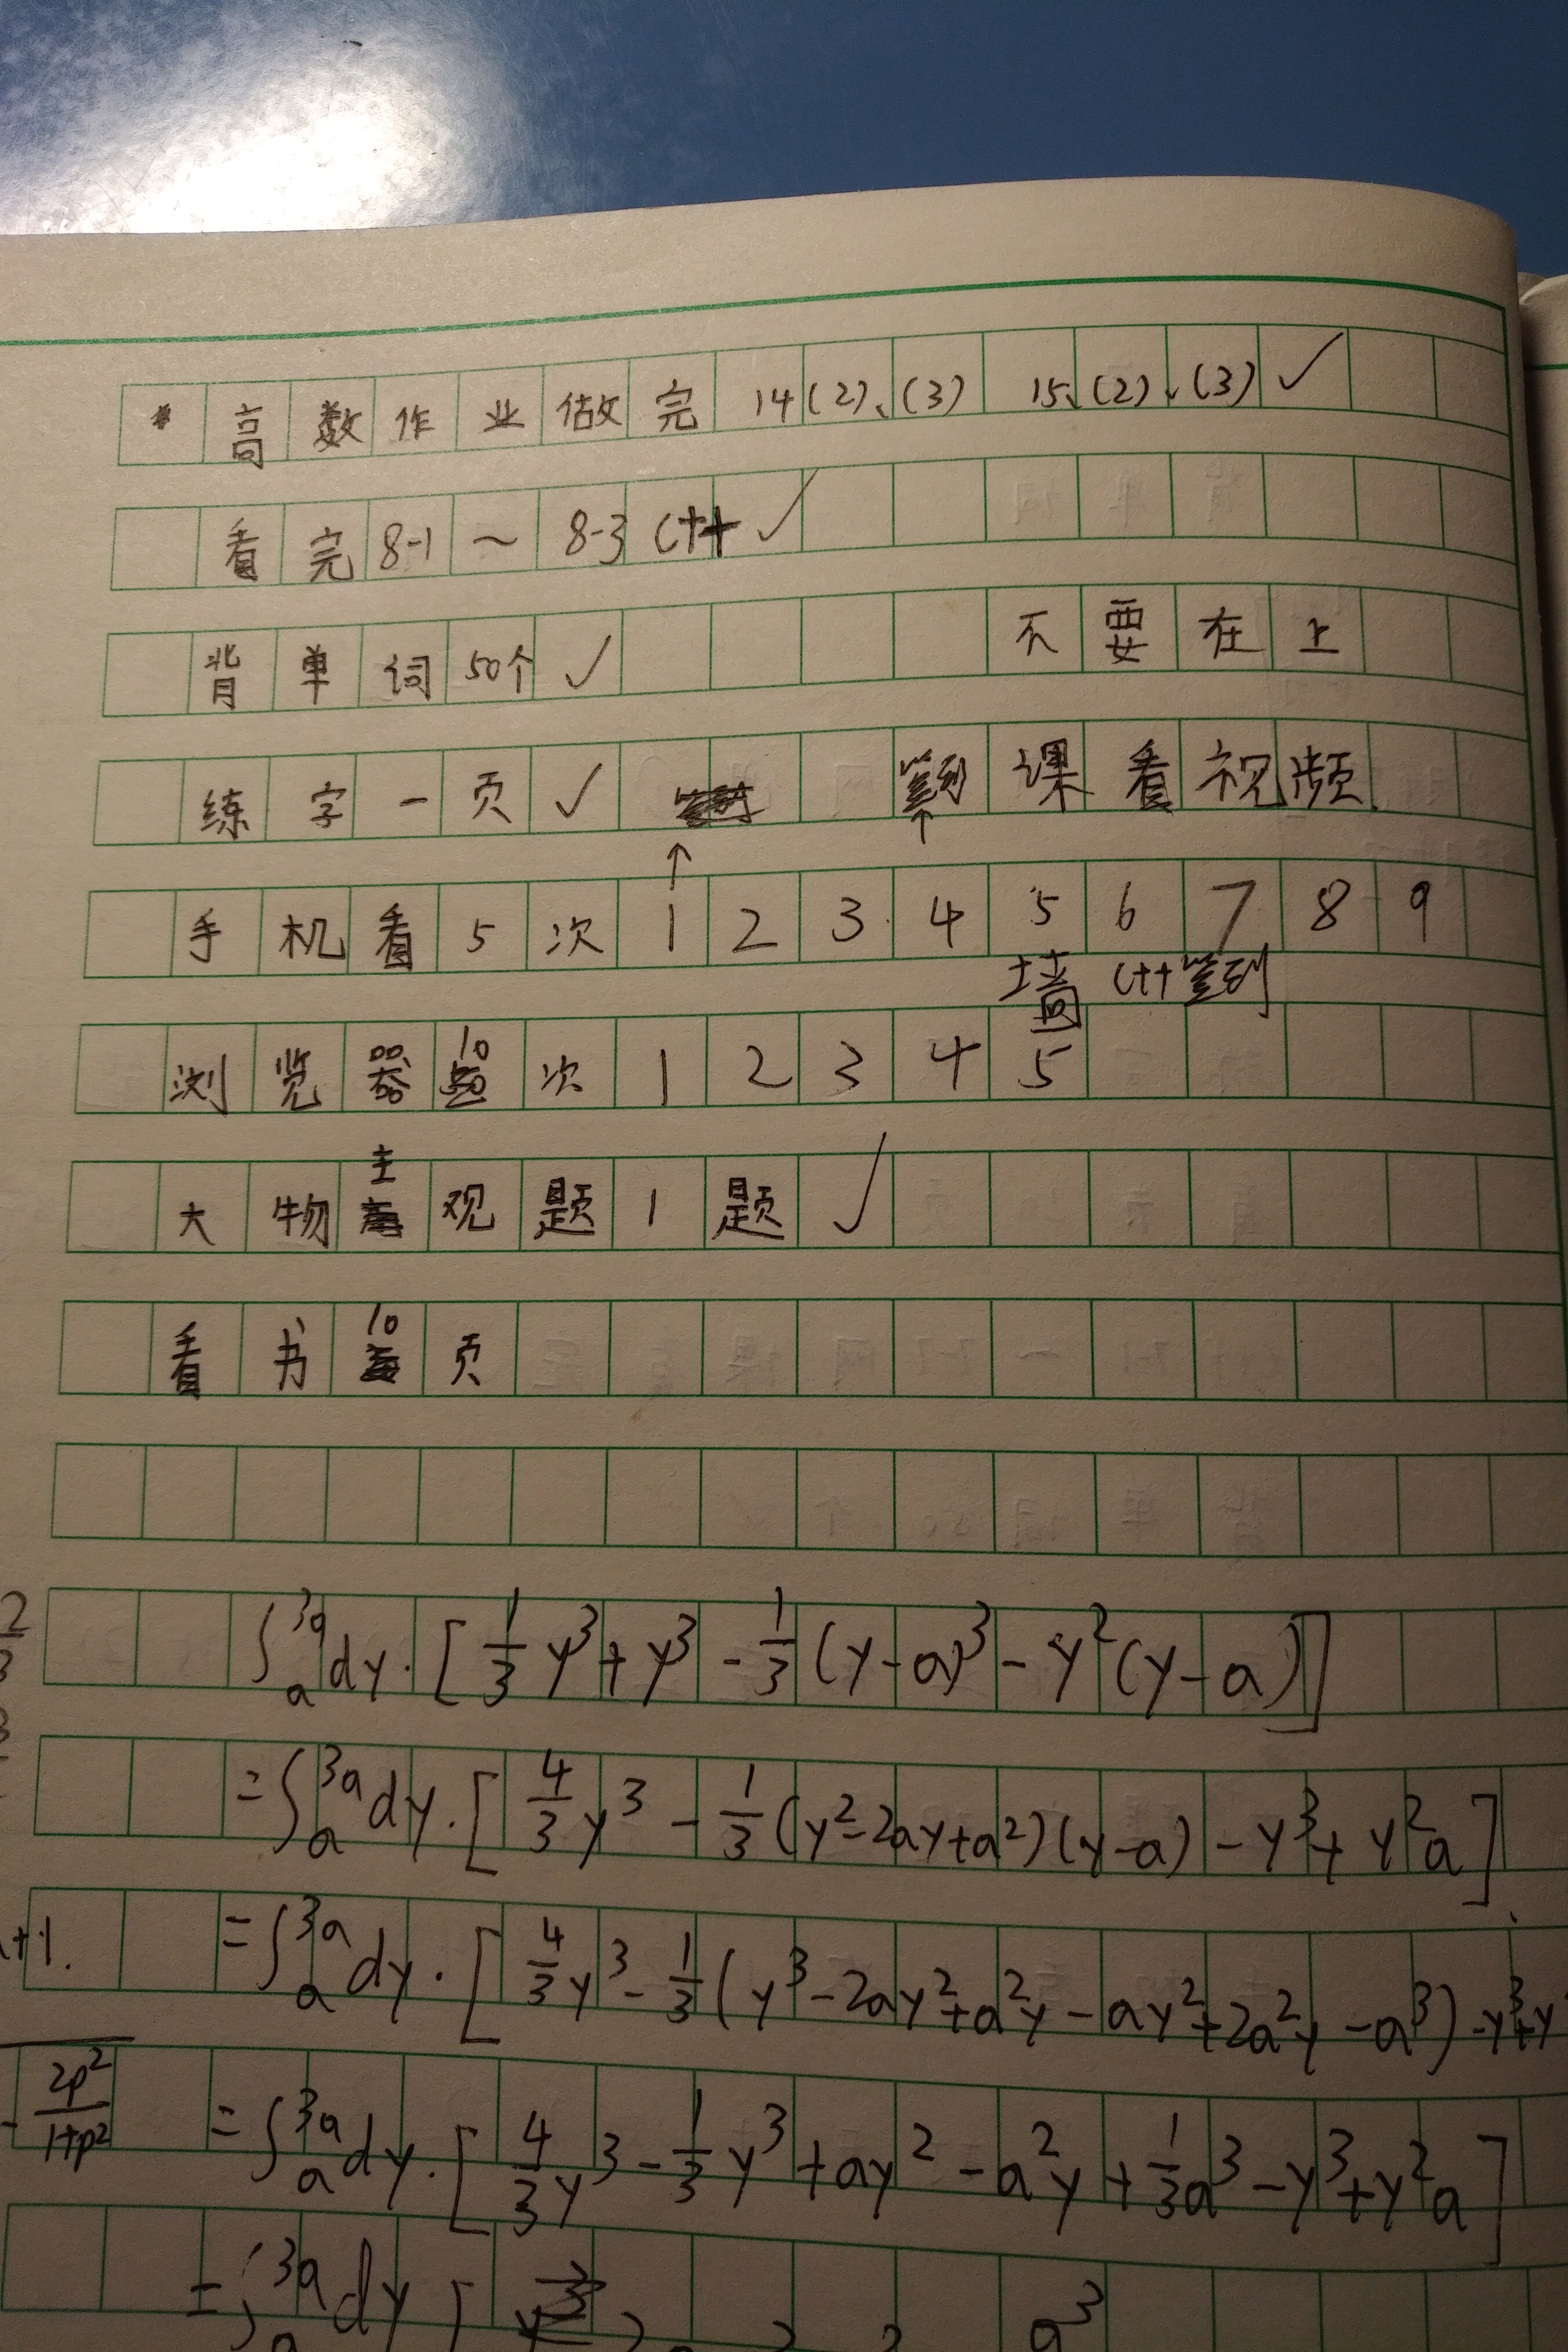 * 高数作业做完 14(2)、(3) 15、(2)、(3) ✓
看完 8-1 ~ 8-3 C++ ✓
不要在上
背单词 50个 ✓
课看视频
练字一页 ✓
↑ ↑
手机看5次 1 2 3 4 5 6 7 8 9
墙 C++签到
浏览器10次 1 2 3 4 5
大物主观题1题 ✓
看书10页
∫_a^{3a} dy·[1/3 y³ + y³ - 1/3 (y-a)³ - y²(y-a)]
=∫_a^{3a} dy·[4/3 y³ - 1/3 (y²-2ay+a²)(y-a) - y³ + y²a]
+1.
=∫_a^{3a} dy·[4/3 y³ - 1/3 (y³-2ay²+a²y-ay²+2a²y-a³) -y³+y
2p²/1+p²
=∫_a^{3a} dy·[4/3 y³ - 1/3 y³ + ay² - a²y + 1/3 a³ - y³ + y²a]
=∫_a^{3a} dy [
a³